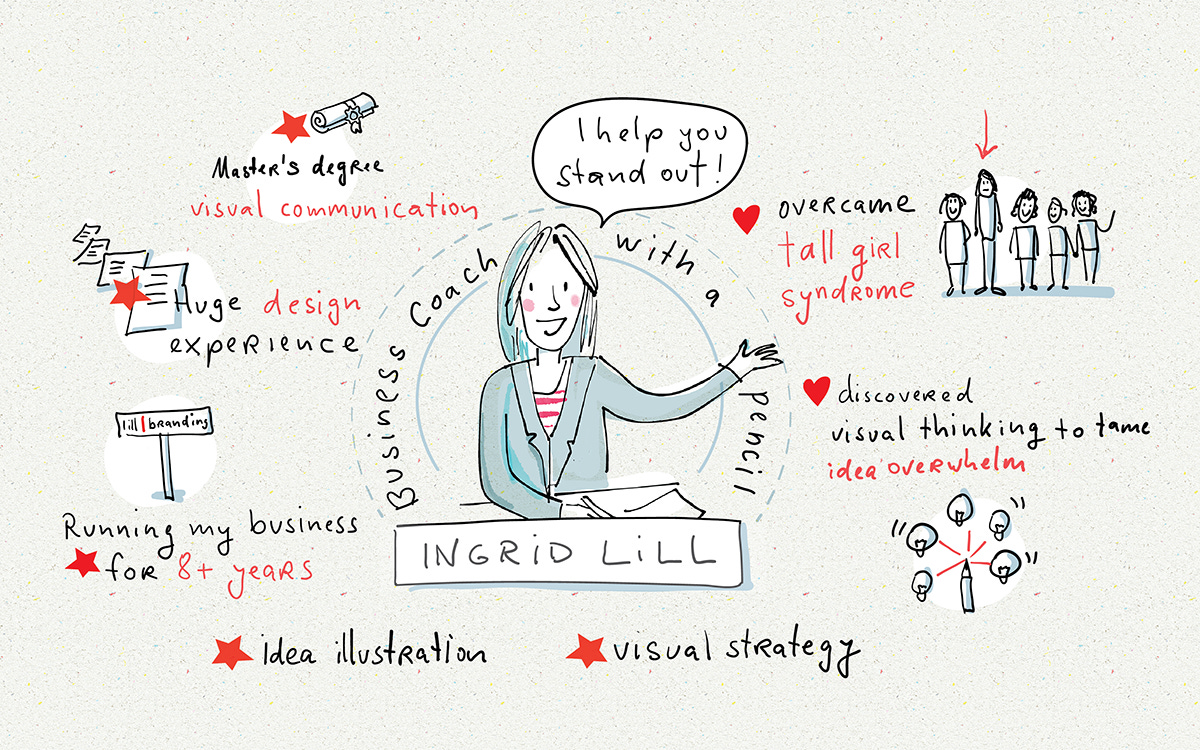 I help you
stand out!
Master's degree
visual communication
Huge design
experience
lill|branding
Running my business
for 8+ years
Business Coach with a pencil
INGRID LILL
overcame
tall girl
syndrome
discovered
visual thinking to tame
idea overwhelm
idea illustration
visual strategy